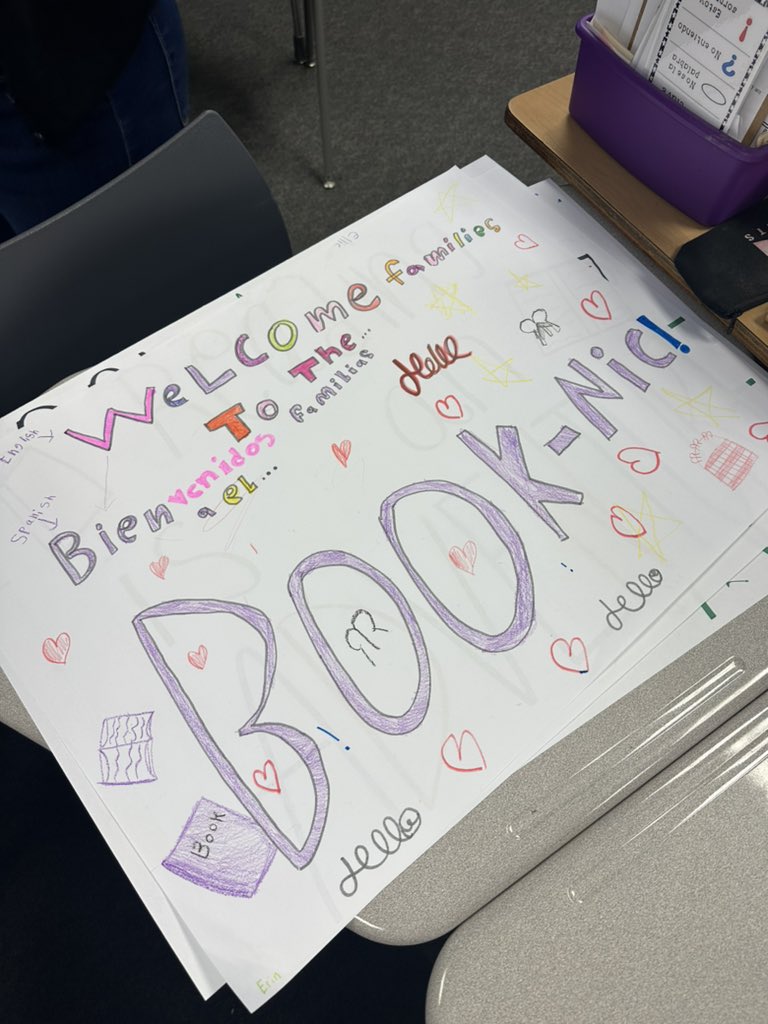 Ellie
English
WeLCOme families
To The...
familias
Spanish
Bienvenidos
a eL...
BOOK-Nic!
Hello
Hello
Hello
BOOK
Erin
Estoy
No entiendo
No se la
palabra